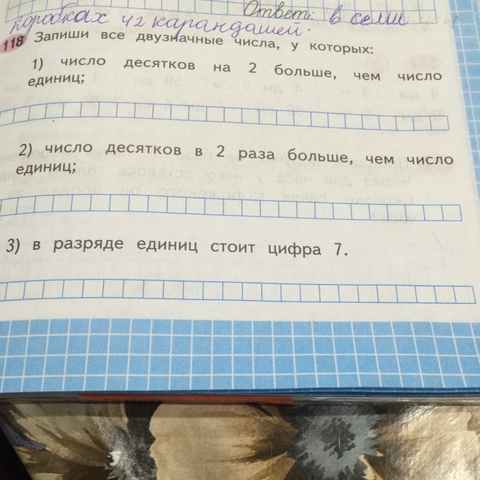 Ответ: в семи
коробках 42 карандашей.
118 Запиши все двузначные числа, у которых:
1) число десятков на 2 больше, чем число
единиц;
2) число десятков в 2 раза больше, чем число
единиц;
3) в разряде единиц стоит цифра 7.